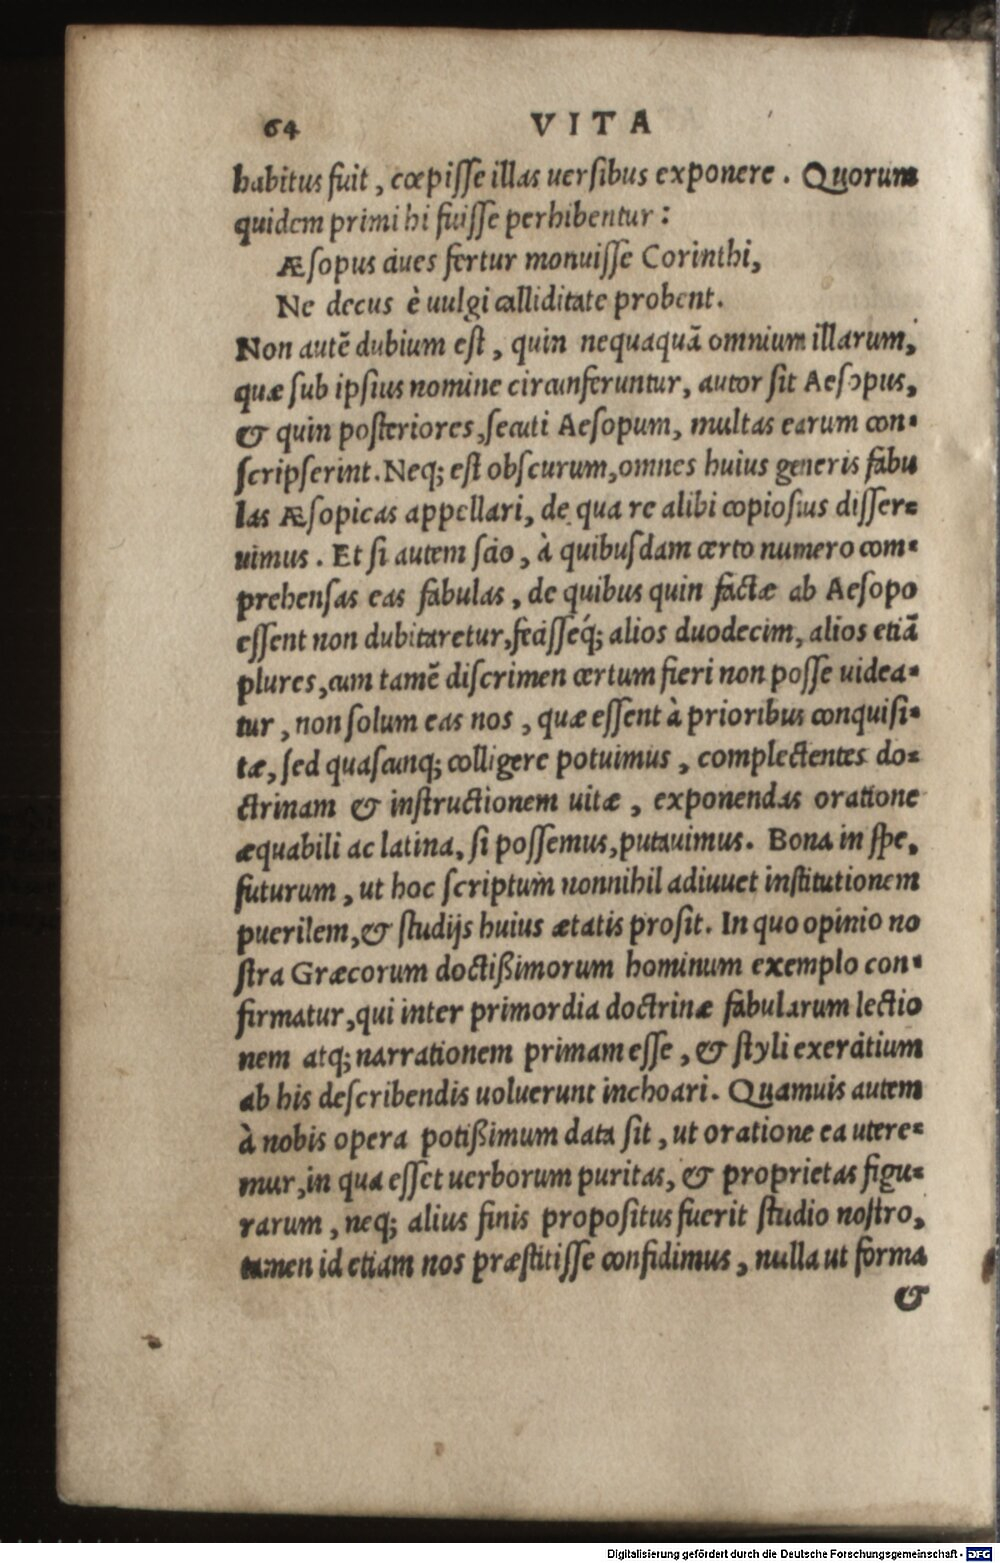 64 VITA
habitus fuit, cœpisse illas uersibus exponere. Quorum
quidem primi hi fuisse perhibentur:
Æsopus ciues fertur monuisse Corinthi,
Ne decus è uulgi calliditate probent.
Non autē dubium est, quin nequaquā omnium illarum,
quæ sub ipsius nomine circunferuntur, autor sit Aesopus,
& quin posteriores, secuti Aesopum, multas earum con-
scripserint. Neq; est obscurum, omnes huius generis fabu
las Æsopicas appellari, de qua re alibi copiosius disser-
uimus. Et si autem scio, à quibusdam certo numero com-
prehensas eas fabulas, de quibus quin factæ ab Aesopo
essent non dubitaretur, fecisseq́; alios duodecim, alios etiā
plures, cum tamē discrimen certum fieri non posse uidea-
tur, non solum eas nos, quæ essent à prioribus conquisi-
tæ, sed quascunq; colligere potuimus, complectentes do-
ctrinam & instructionem uitæ, exponendas oratione
æquabili ac latina, si possemus, putauimus. Bona in spe,
futurum, ut hoc scriptum nonnihil adiuuet institutionem
puerilem, & studijs huius ætatis prosit. In quo opinio no
stra Græcorum doctißimorum hominum exemplo con-
firmatur, qui inter primordia doctrinæ fabularum lectio
nem atq; narrationem primam esse, & styli exercitium
ab his describendis uoluerunt inchoari. Quamuis autem
à nobis opera potißimum data sit, ut oratione ea utere-
mur, in qua esset uerborum puritas, & proprietas figu-
rarum, neq; alius finis propositus fuerit studio nostro,
tamen id etiam nos præstitisse confidimus, nulla ut forma
&
Digitalisierung gefördert durch die Deutsche Forschungsgemeinschaft - DFG